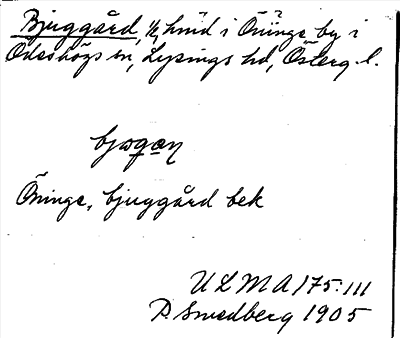 Bjuggård, ½ hmd i Öninge by i
Ödeshögs sn, Lysings hd, Österg. l.
Öninge, bjuggård bek
ULMA 175:111
D. Smedberg 1905